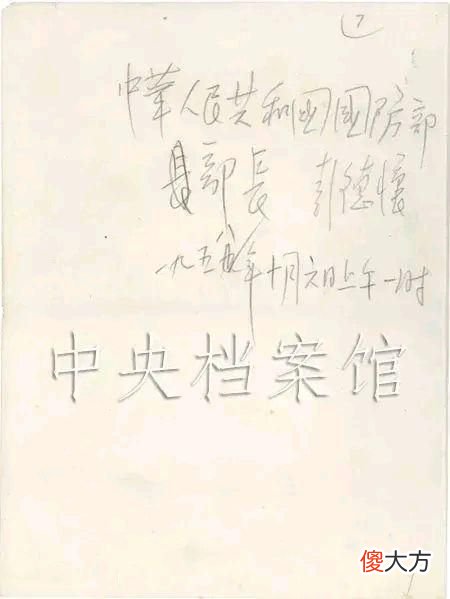 7
中華人民共和国國防部
部長 彭德懷
一九五八年十月六日上午一时
中央档案馆
傻大方